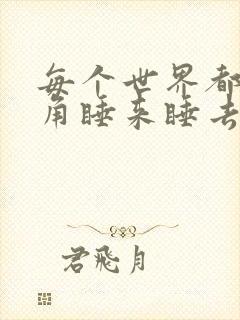 每个世界都
角睡来睡去
君飛月